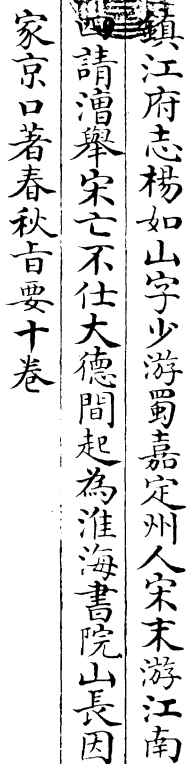 鎮江府志楊如山字少游蜀嘉定州人宋末游江南
四請漕舉宋亡不仕大德間起為淮海書院山長因
家京口著春秋旨要十卷